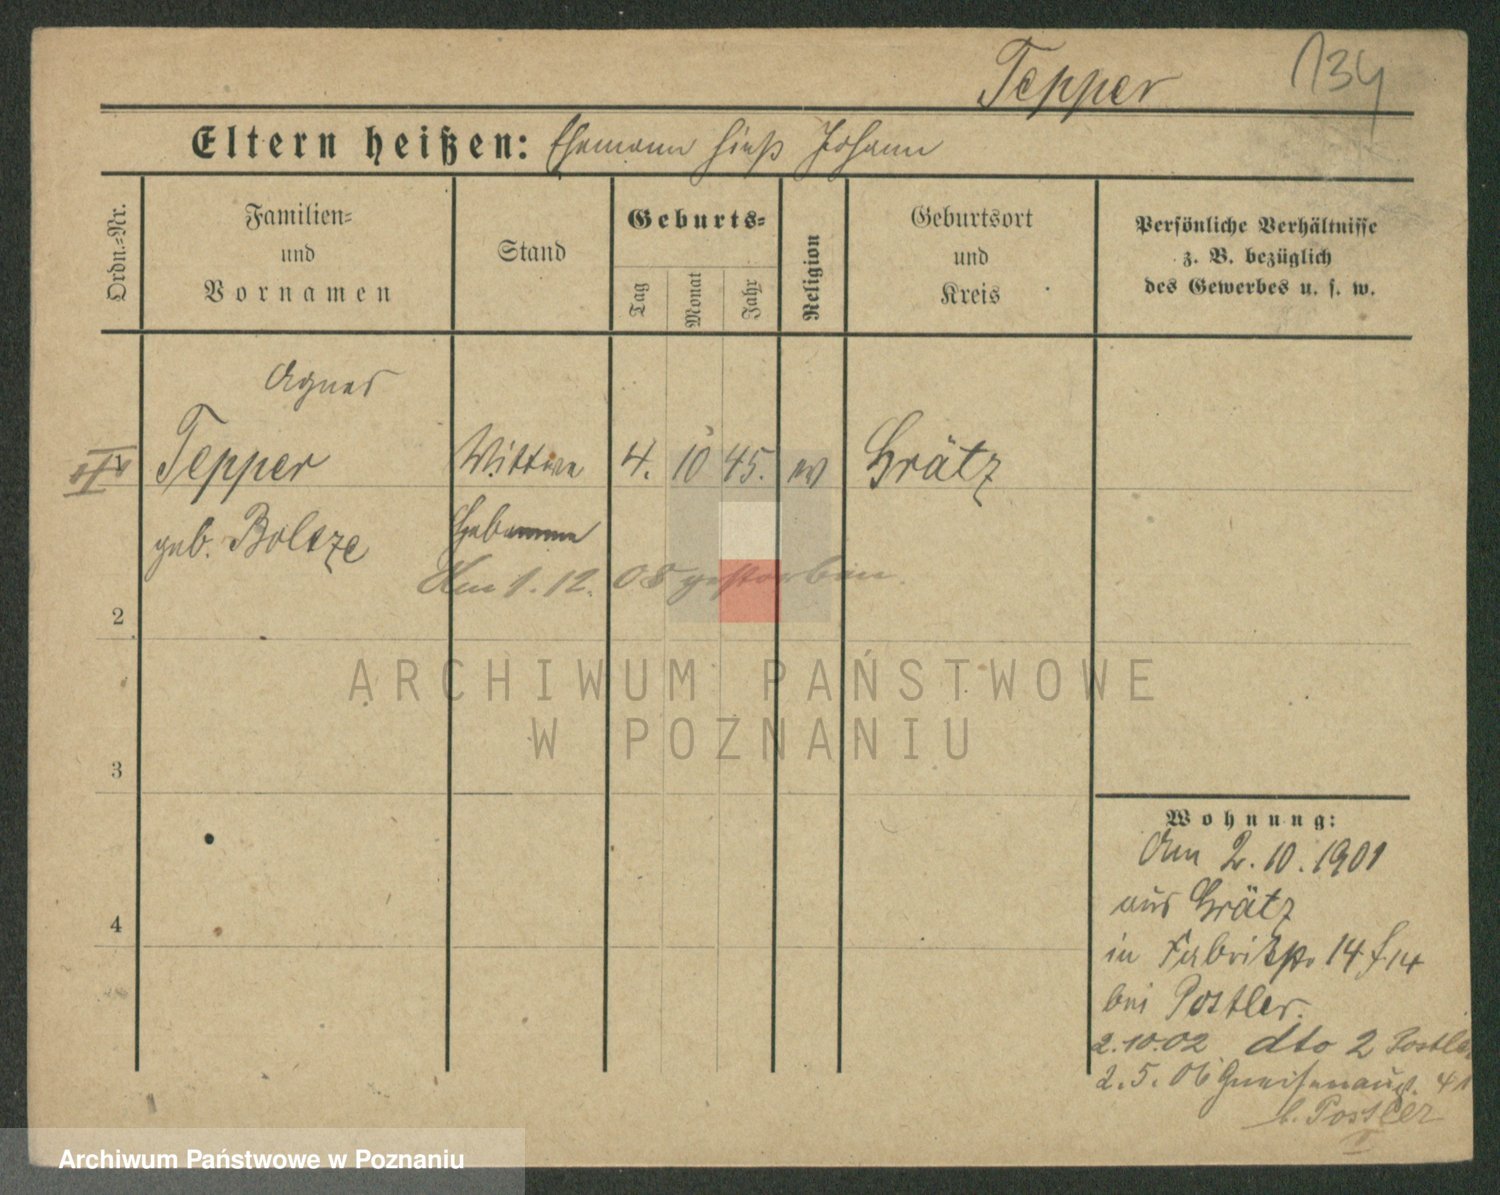 Tepper 134
Eltern heißen: Ehemann hieß Johann
Ordn.-Nr.
Familien-
und
Vornamen
Stand
Geburts-
Tag
Monat
Jahr
Religion
Geburtsort
und
Kreis
Persönliche Verhältnisse
z. B. bezüglich
des Gewerbes u. s. w.
Agnes
Tepper Wittwe 4. 10 45. Grätz
geb. Boltze Hebamme
Am 1. 12. 08 gestorben.
2
3
4
Wohnung:
Am 2.10.1901
aus Grätz
in Fabrikstr. 14
bei Postler.
2.10.02 dto 2 Postler
2.5.06 Gneisenaustr. 41
b. Postler
II
ARCHIWUM PAŃSTWOWE
W POZNANIU
Archiwum Państwowe w Poznaniu